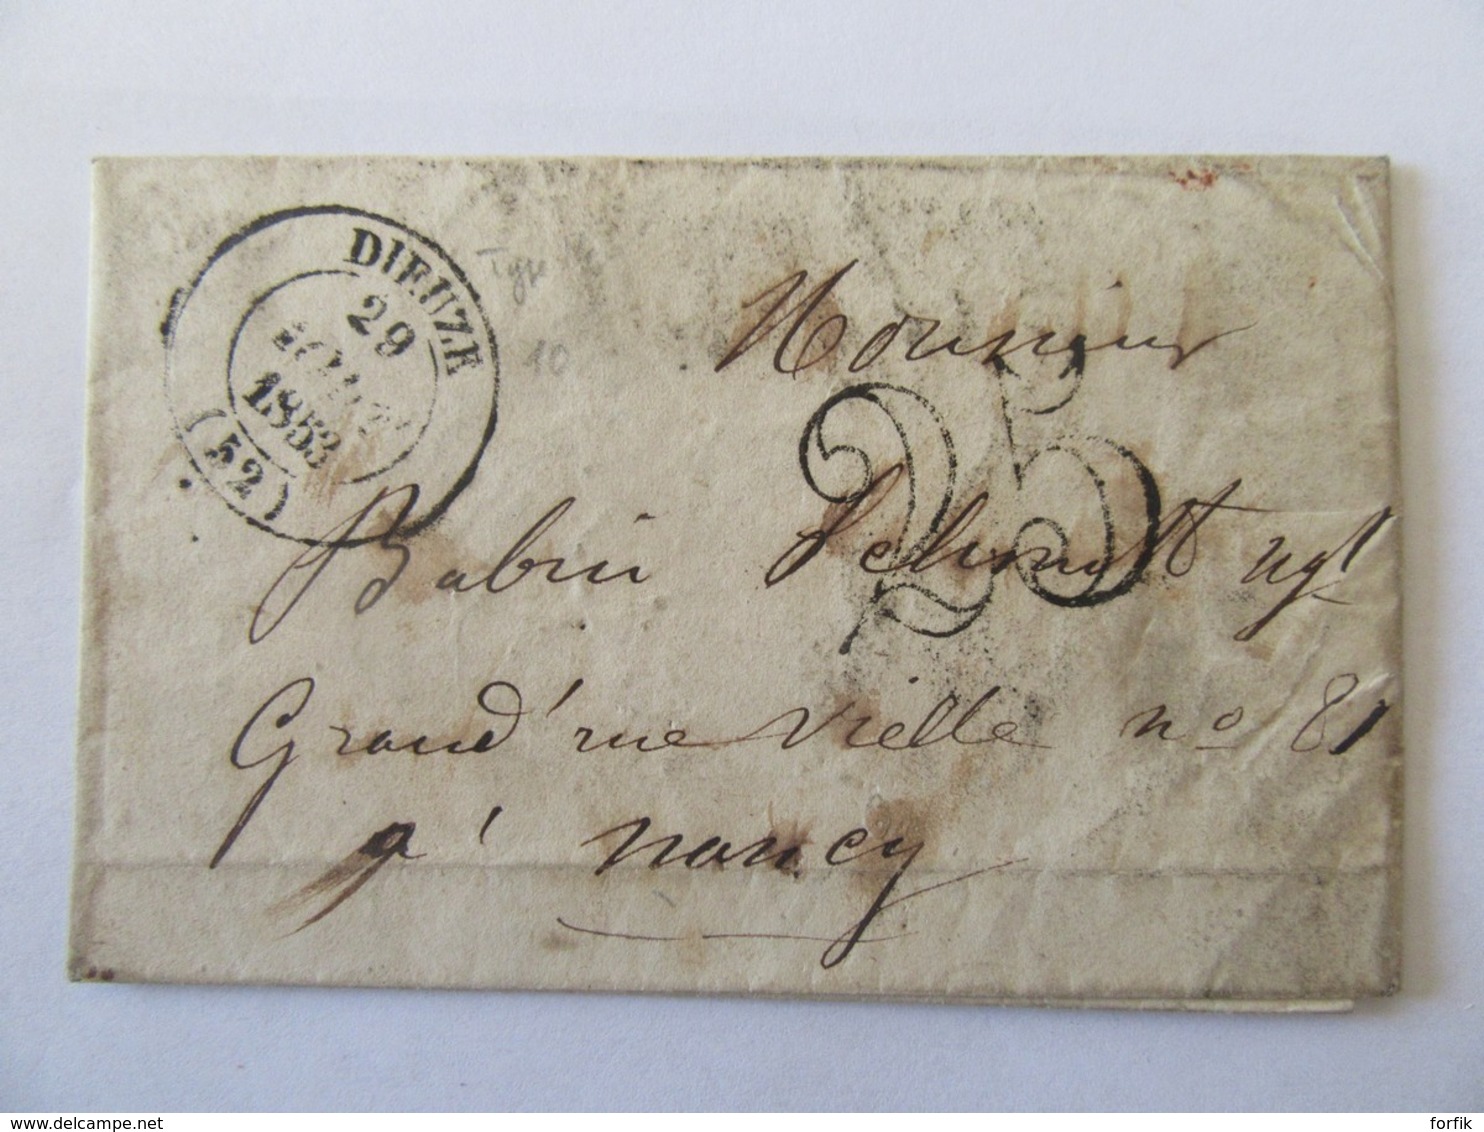 DIEUZE
29
AOUT
1853
(52)
Type
10
Monsieur
25
Babin Schmitt ngt
Grand'rue Vielle no 81
a' nancy
delcampe.net
forfik